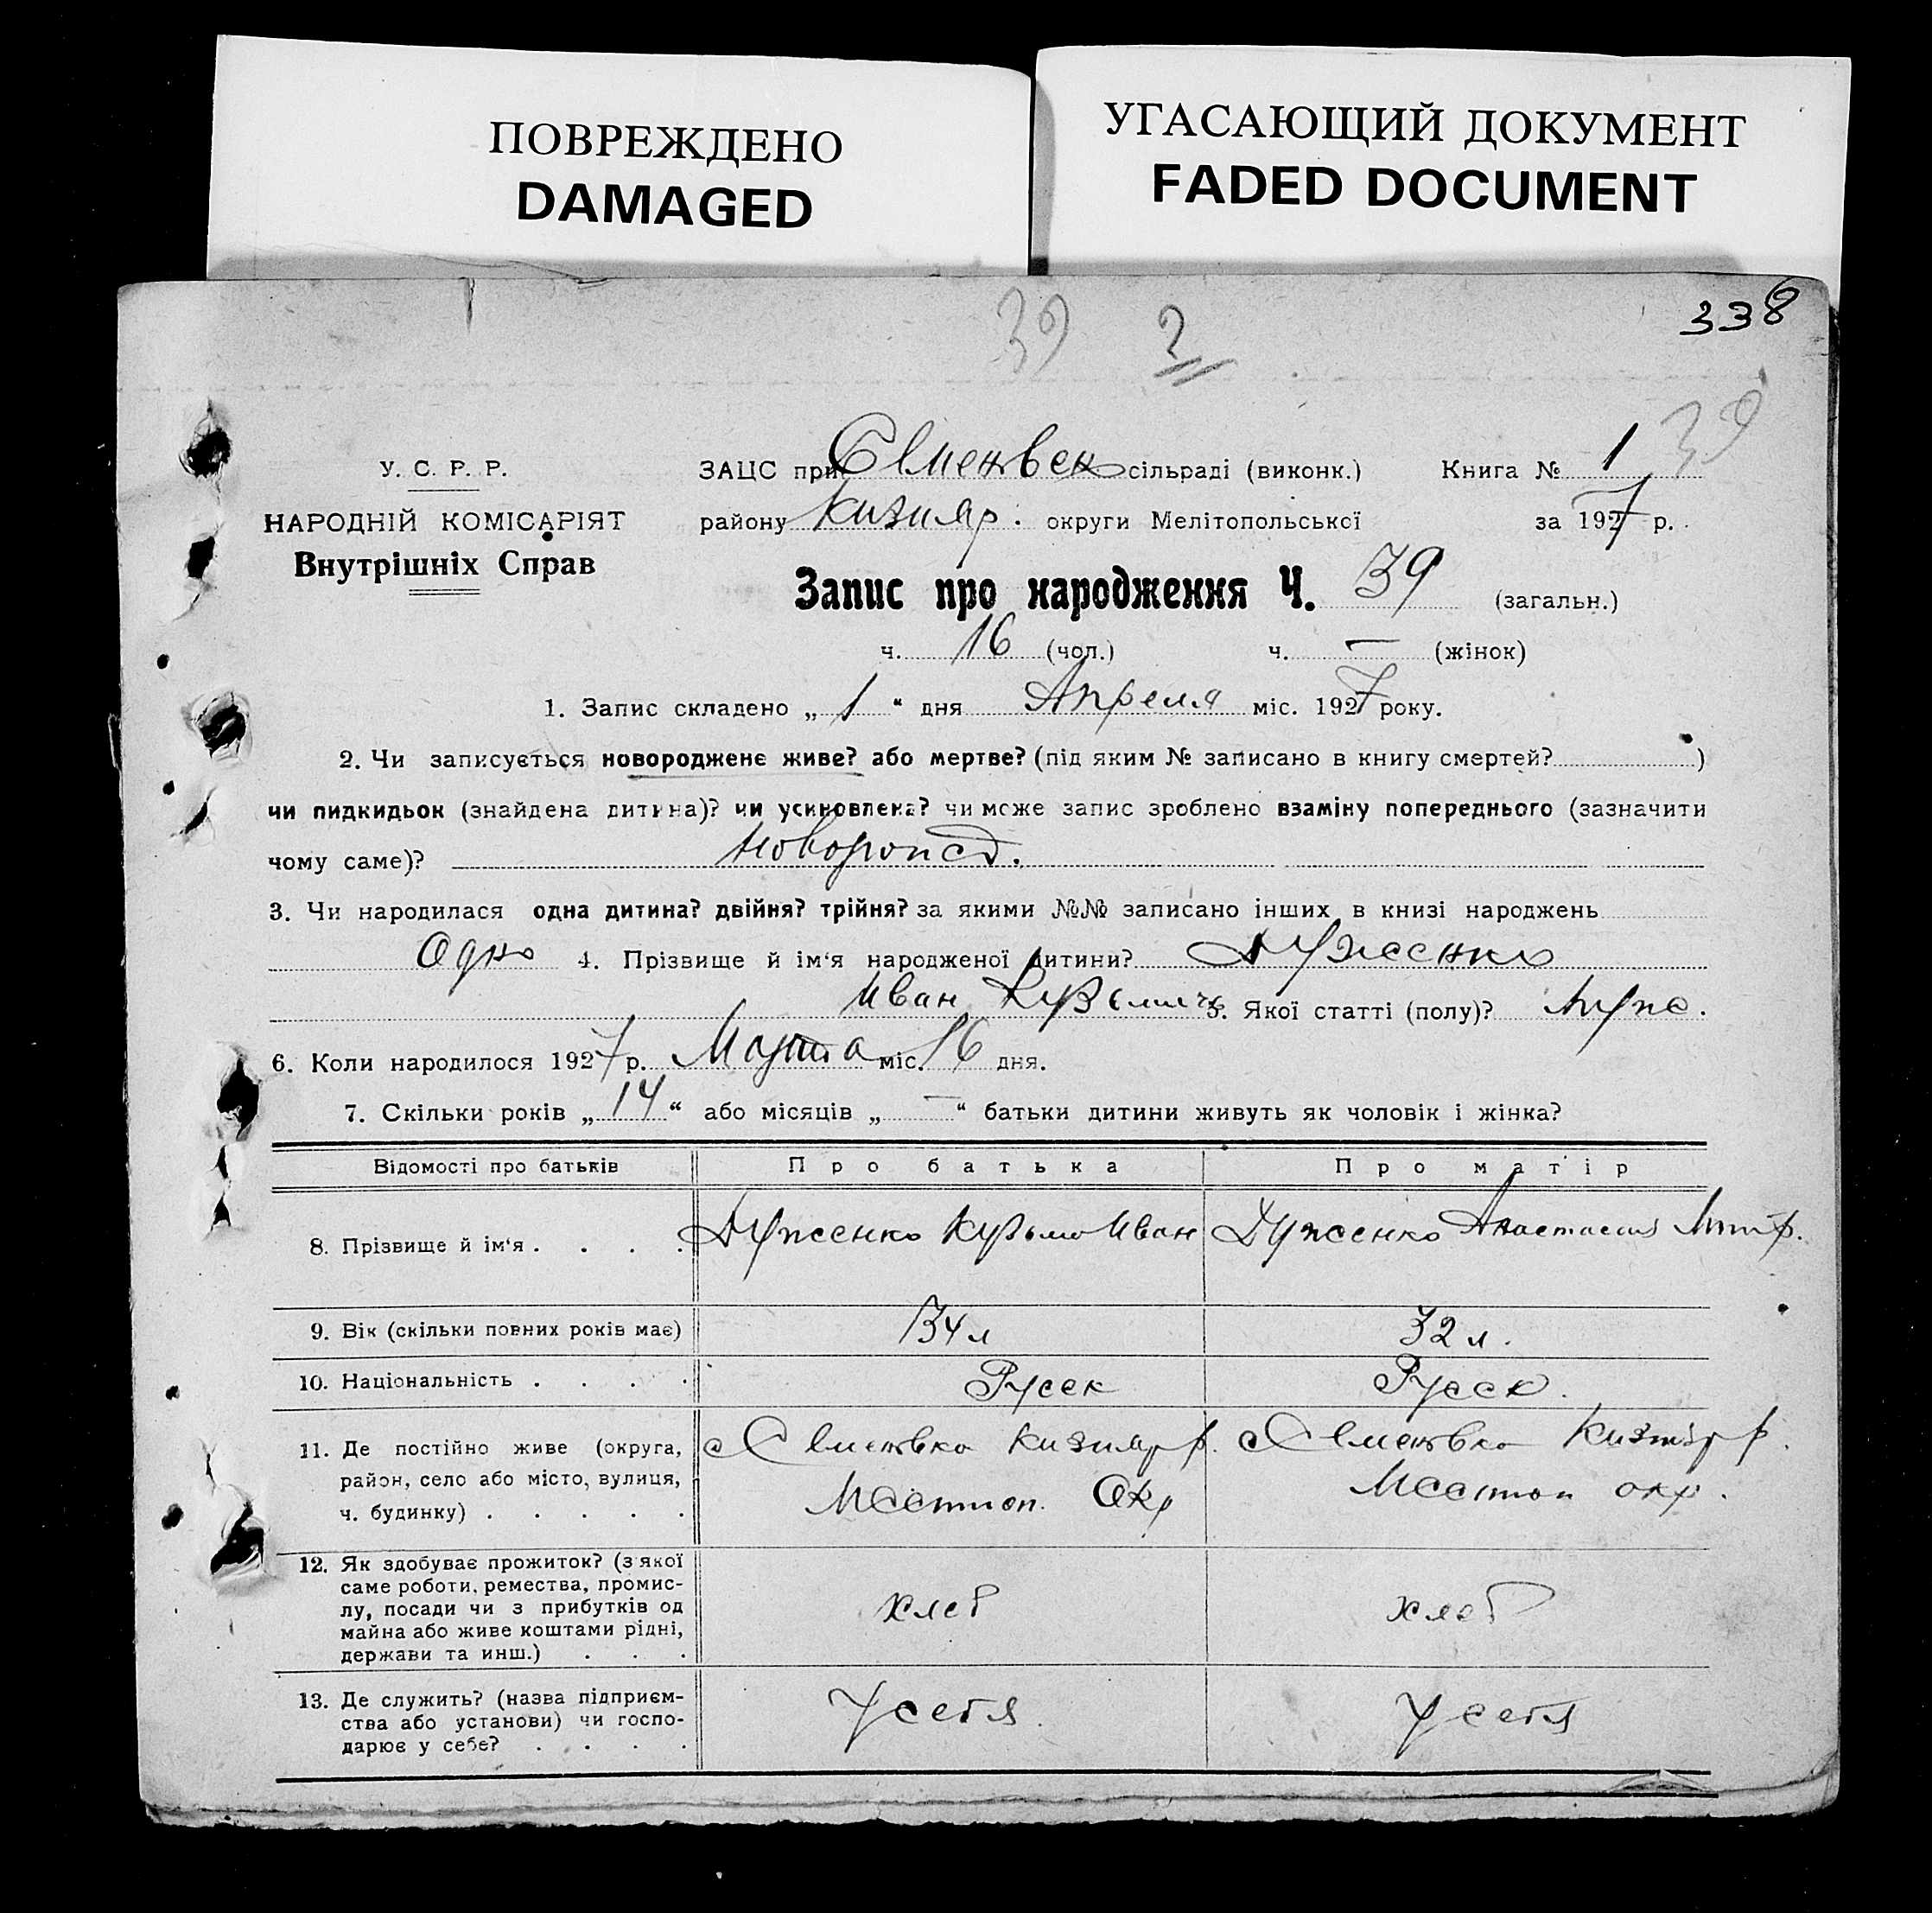 ПОВРЕЖДЕНО
DAMAGED
УГАСАЮЩИЙ ДОКУМЕНТ
FADED DOCUMENT
338
39 2
39
У. С. Р. Р.
НАРОДНІЙ КОМІСАРІЯТ
Внутрішніх Справ
ЗАЦС при сільраді (виконк.) Книга № 1
району Кизияр. округи Мелітопольської за 1927 р.
Запис про народження Ч. 39 (загальн.)
ч. 16 (чол.) ч. — (жінок)
1. Запис складено „ 1 “ дня Апреля міс. 1927 року.
2. Чи записується новороджене живе? або мертве? (під яким № записано в книгу смертей? )
чи пидкидьок (знайдена дитина)? чи усиновлена? чи може запис зроблено взаміну попереднього (зазначити
чому саме)? Новорожд.
3. Чи народилася одна дитина? двійня? трійня? за якими №№ записано інших в книзі народжень
Одно 4. Прізвище й ім‘я народженої дитини? Дуженко
Иван Кузьмич 5. Якої статті (полу)? Муж.
6. Коли народилося 1927 р. Марта міс. 16 дня.
7. Скільки років „ 14 “ або місяців „ — “ батьки дитини живуть як чоловік і жінка?
Відомості про батьків Про батька Про матір
8. Прізвище й ім‘я . . . . Дуженко Кузьма Иван Дуженко Анастасия
9. Вік (скільки повних років має) 34 л 32 л.
10. Національність . . . . Русск Русск.
11. Де постійно живе (округа,
район, село або місто, вулиця,
ч. будинку) . . . . .
Кизияр р.
Окр
Кизияр р.
окр.
12. Як здобуває прожиток? (з якої
саме роботи, ремества, промис-
лу, посади чи з прибутків од
майна або живе коштами рідні,
держави та инш.) . . .
хлеб
хлеб
13. Де служить? (назва підприєм-
ства або установи) чи госпо-
дарює у себе? . . . .
У себя
У себя